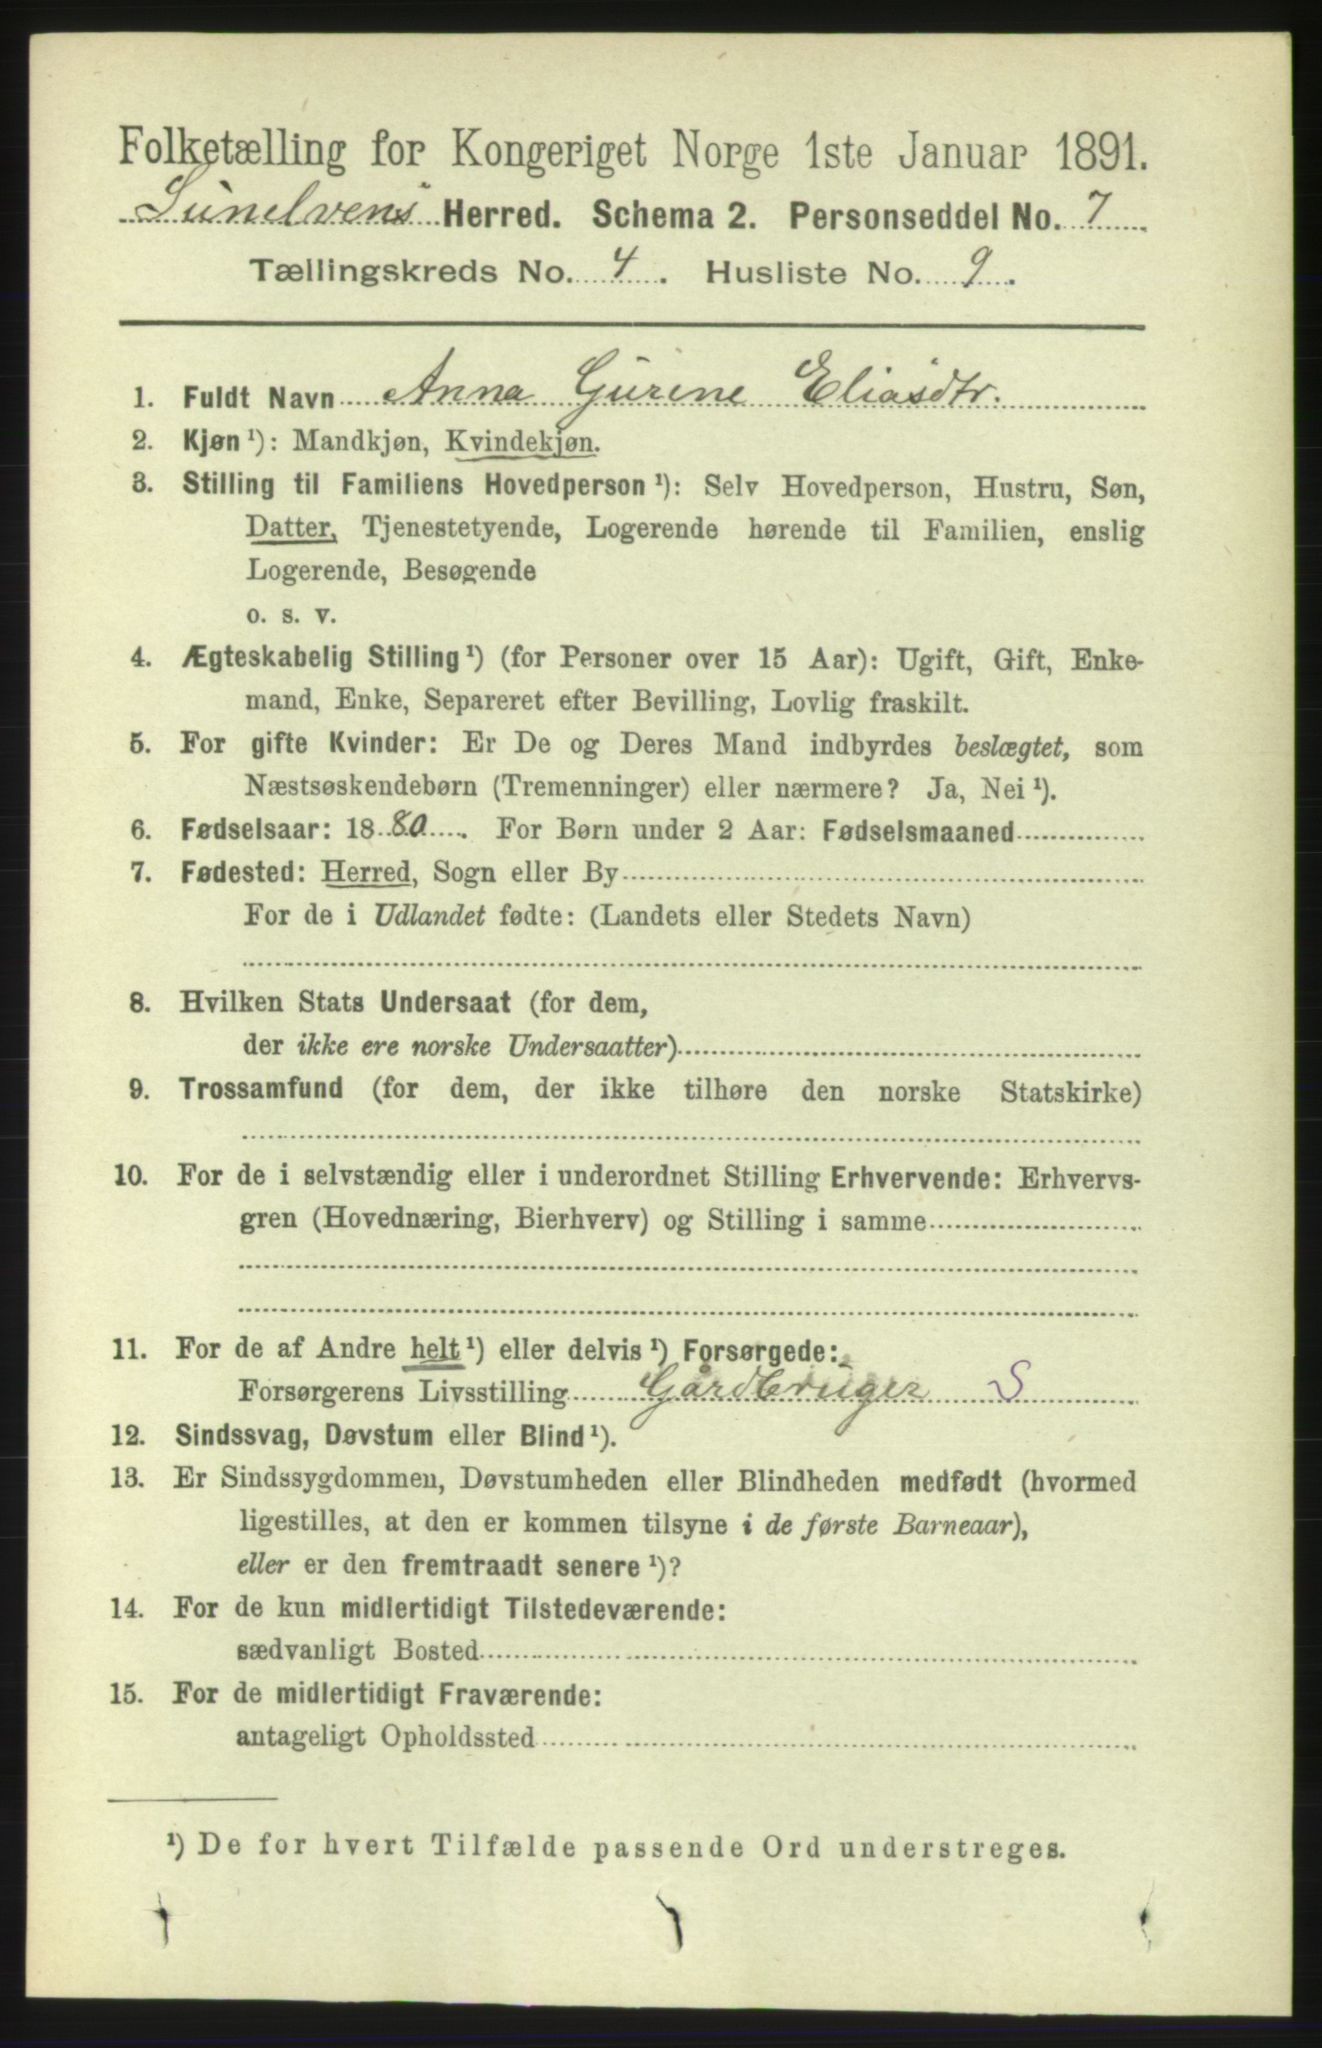 Folketælling for Kongeriget Norge 1ste Januar 1891.
Sunelvens Herred. Schema 2. Personseddel No. 7
Tællingskreds No. 4. Husliste No. 9.
1. Fuldt Navn Anna Gurine Eliasdtr.
2. Kjøn ¹): Mandkjøn, Kvindekjøn.
3. Stilling til Familiens Hovedperson ¹): Selv Hovedperson, Hustru, Søn,
Datter, Tjenestetyende, Logerende hørende til Familien, enslig
Logerende, Besøgende
o. s. v.
4. Ægteskabelig Stilling ¹) (for Personer over 15 Aar): Ugift, Gift, Enke-
mand, Enke, Separeret efter Bevilling, Lovlig fraskilt.
5. For gifte Kvinder: Er De og Deres Mand indbyrdes beslægtet, som
Næstsøskendebørn (Tremenninger) eller nærmere? Ja, Nei ¹).
6. Fødselsaar: 1880. For Børn under 2 Aar: Fødselsmaaned
7. Fødested: Herred, Sogn eller By
For de i Udlandet fødte: (Landets eller Stedets Navn)
8. Hvilken Stats Undersaat (for dem,
der ikke ere norske Undersaatter)
9. Trossamfund (for dem, der ikke tilhøre den norske Statskirke)
10. For de i selvstændig eller i underordnet Stilling Erhvervende: Erhvervs-
gren (Hovednæring, Bierhverv) og Stilling i samme
11. For de af Andre helt ¹) eller delvis ¹) Forsørgede:
Forsørgerens Livsstilling Gårdbruger S
12. Sindssvag, Døvstum eller Blind ¹).
13. Er Sindssygdommen, Døvstumheden eller Blindheden medfødt (hvormed
ligestilles, at den er kommen tilsyne i de første Barneaar),
eller er den fremtraadt senere ¹)?
14. For de kun midlertidigt Tilstedeværende:
sædvanligt Bosted
15. For de midlertidigt Fraværende:
antageligt Opholdssted
¹) De for hvert Tilfælde passende Ord understreges.